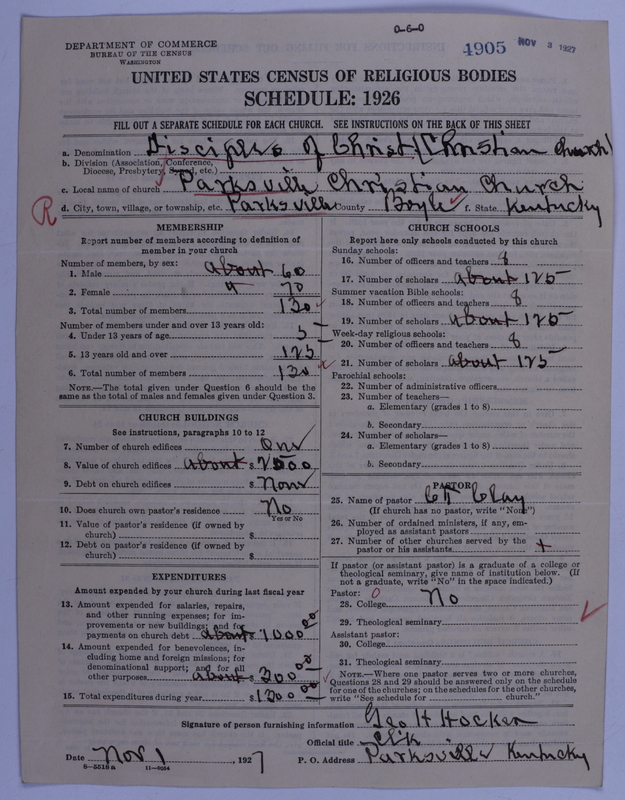 0-6-0
DEPARTMENT OF COMMERCE
BUREAU OF THE CENSUS
WASHINGTON
4905 NOV 3 1927
UNITED STATES CENSUS OF RELIGIOUS BODIES
SCHEDULE: 1926
FILL OUT A SEPARATE SCHEDULE FOR EACH CHURCH. SEE INSTRUCTIONS ON THE BACK OF THIS SHEET
a. Denomination Disciples of Christ (Christian Church)
b. Division (Association, Conference,
Diocese, Presbytery, Synod, etc.)
c. Local name of church Parksville Christian Church
R d. City, town, village, or township, etc. Parksville County Boyle f. State Kentucky
MEMBERSHIP
Report number of members according to definition of
member in your church
Number of members, by sex:
1. Male about 60
2. Female " 70
3. Total number of members 130
Number of members under and over 13 years old:
4. Under 13 years of age 5
5. 13 years old and over 125
6. Total number of members 130
NOTE.—The total given under Question 6 should be the
same as the total of males and females given under Question 3.
CHURCH BUILDINGS
See instructions, paragraphs 10 to 12
7. Number of church edifices One
8. Value of church edifices about $ 2500
9. Debt on church edifices $ None
10. Does church own pastor's residence No
Yes or No
11. Value of pastor's residence (if owned by
church) $
12. Debt on pastor's residence (if owned by
church) $
EXPENDITURES
Amount expended by your church during last fiscal year
13. Amount expended for salaries, repairs,
and other running expenses; for im-
provements or new buildings; and for
payments on church debt about $ 1000 00
14. Amount expended for benevolences, in-
cluding home and foreign missions; for
denominational support; and for all
other purposes about $ 200 00
15. Total expenditures during year $ 1200 00
CHURCH SCHOOLS
Report here only schools conducted by this church
Sunday schools:
16. Number of officers and teachers 8
17. Number of scholars about 125
Summer vacation Bible schools:
18. Number of officers and teachers 8
19. Number of scholars about 125
Week-day religious schools:
20. Number of officers and teachers 8
21. Number of scholars about 125
Parochial schools:
22. Number of administrative officers
23. Number of teachers—
a. Elementary (grades 1 to 8)
b. Secondary
24. Number of scholars—
a. Elementary (grades 1 to 8)
b. Secondary
PASTOR
25. Name of pastor Clay
(If church has no pastor, write "None")
26. Number of ordained ministers, if any, em-
ployed as assistant pastors
27. Number of other churches served by the
pastor or his assistants
If pastor (or assistant pastor) is a graduate of a college or
theological seminary, give name of institution below. (If
not a graduate, write "No" in the space indicated.)
Pastor: 0
28. College No
29. Theological seminary
Assistant pastor:
30. College
31. Theological seminary
NOTE.—Where one pastor serves two or more churches,
Questions 28 and 29 should be answered only on the schedule
for one of the churches; on the schedules for the other churches,
write "See schedule for church."
Signature of person furnishing information Geo H Hocker
Official title Clk
Date Nov 1, 1927 P. O. Address Parksville Kentucky
8—5519a 11—9054